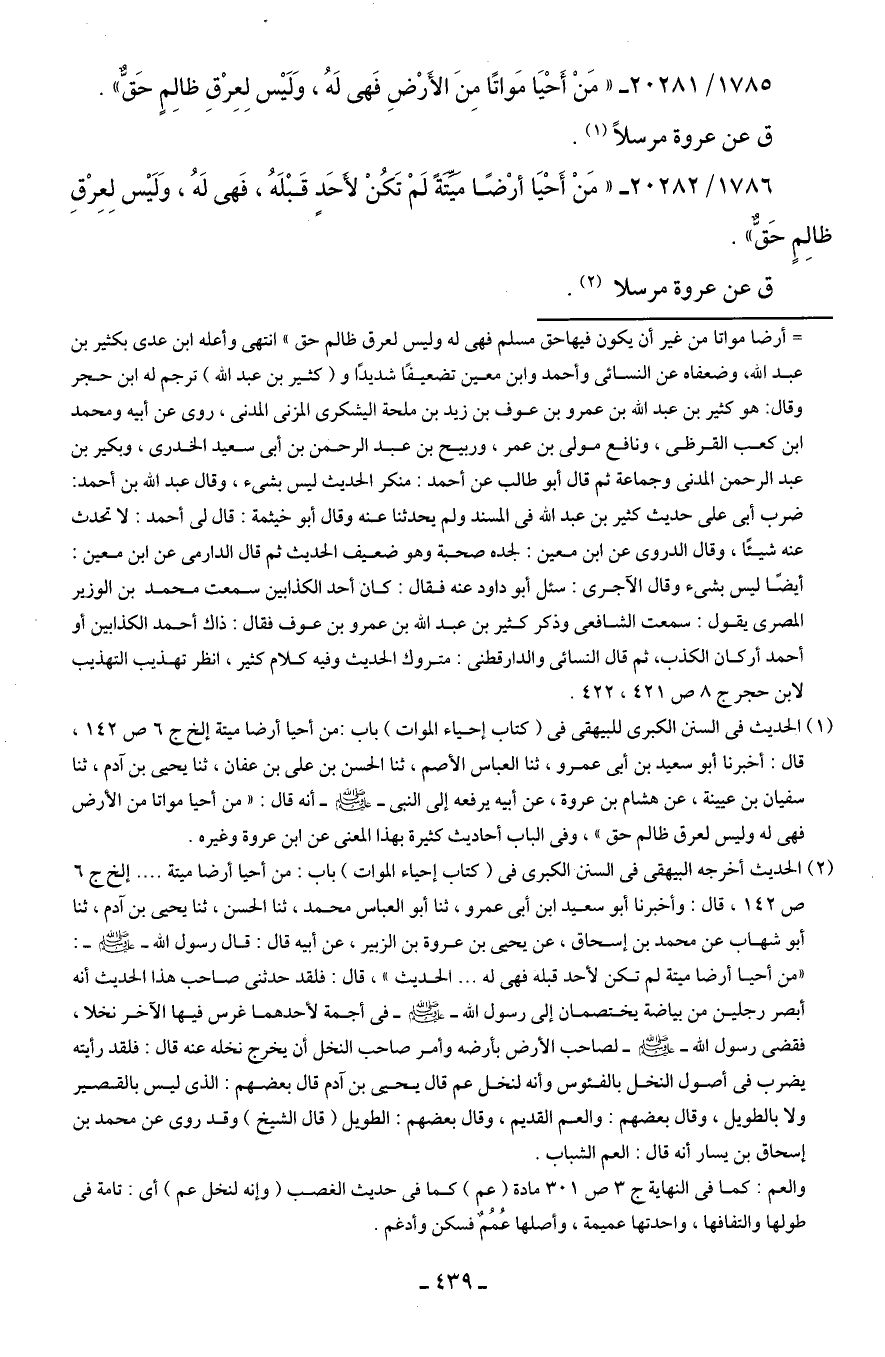 ١٧٨٥/ ٢٠٢٨١ـ « مَنْ أَحْيَا مَواتًا مِنَ الأَرْضِ فَهِى لَهُ ، وَلَيْس لِعِرْقِ ظالِمٍ حَقٌّ» .
ق عن عروة مرسلاً (١) .
١٧٨٦/ ٢٠٢٨٢ـ « مَنْ أَحْيَا أرْضًا مَيِّتَةً لَمْ تَكُنْ لأَحَدٍ قَبْلَهُ ، فَهِى لَهُ ، وَلَيْس لِعِرْقِ
ظالِمٍ حَقٌّ» .
ق عن عروة مرسلا (٢) .
= أرضا مواتا من غير أن يكون فيهاحق مسلم فهى له وليس لعرق ظالم حق » انتهى وأعله ابن عدى بكثير بن
عبد الله، وضعفاه عن النسائى وأحمد وابن معين تضعيفًا شديدًا و ( كثير بن عبد الله ) ترجم له ابن حجر
وقال: هو كثير بن عبد الله بن عمرو بن عوف بن زيد بن ملحة اليشكرى المزنى المدنى ، روى عن أبيه ومحمد
ابن كعب القرظى ، ونافع مولى بن عمر ، وربيح بن عبد الرحمن بن أبى سعيد الخدرى ، وبكير بن
عبد الرحمن المدنى وجماعة ثم قال أبو طالب عن أحمد : منكر الحديث ليس بشىء ، وقال عبد الله بن أحمد:
ضرب أبى على حديث كثير بن عبد الله فى المسند ولم يحدثنا عنه وقال أبو خيثمة : قال لى أحمد : لا تحدث
عنه شيئًا ، وقال الدروى عن ابن معين : لجده صحبة وهو ضعيف الحديث ثم قال الدارمى عن ابن معين :
أيضًا ليس بشىء وقال الآجرى : سئل أبو داود عنه فقال : كان أحد الكذابين سمعت محمد بن الوزير
المصرى يقول : سمعت الشافعى وذكر كثير بن عبد الله بن عمرو بن عوف فقال : ذاك أحمد الكذابين أو
أحمد أركان الكذب، ثم قال النسائى والدارقطنى : متروك الحديث وفيه كلام كثير ، انظر تهذيب التهذيب
لابن حجر ج ٨ ص ٤٢١ ، ٤٢٢ .
(١) الحديث فى السنن الكبرى للبيهقى فى ( كتاب إحياء الموات ) باب :من أحيا أرضا ميتة إلخ ج ٦ ص ١٤٢ ،
قال : أخبرنا أبو سعيد بن أبى عمرو ، ثنا العباس الأصم ، ثنا الحسن بن على بن عفان ، ثنا يحيى بن آدم ، ثنا
سفيان بن عيينة ، عن هشام بن عروة ، عن أبيه يرفعه إلى النبى ـ ﷺ ـ أنه قال : « من أحيا مواتا من الأرض
فهى له وليس لعرق ظالم حق » ، وفى الباب أحاديث كثيرة بهذا المعنى عن ابن عروة وغيره .
(٢) الحديث أخرجه البيهقى فى السنن الكبرى فى ( كتاب إحياء الموات ) باب : من أحيا أرضا ميتة .... إلخ ج ٦
ص ١٤٢ ، قال : وأخبرنا أبو سعيد ابن أبى عمرو ، ثنا أبو العباس محمد ، ثنا الحسن ، ثنا يحيى بن آدم ، ثنا
أبو شهاب عن محمد بن إسحاق ، عن يحيى بن عروة بن الزبير ، عن أبيه قال : قال رسول الله ـ ﷺ ـ :
«من أحيا أرضا ميتة لم تكن لأحد قبله فهى له ... الحديث » ، قال : فلقد حدثنى صاحب هذا الحديث أنه
أبصر رجلين من بياضة يختصمان إلى رسول الله ـ ﷺ ـ فى أجمة لأحدهما غرس فيها الآخر نخلا ،
فقضى رسول الله ـ ﷺ ـ لصاحب الأرض بأرضه وأمر صاحب النخل أن يخرج نخله عنه قال : فلقد رأيته
يضرب فى أصول النخل بالفئوس وأنه لنخل عم قال يحيى بن آدم قال بعضهم : الذى ليس بالقصير
ولا بالطويل ، وقال بعضهم : والعم القديم ، وقال بعضهم : الطويل ( قال الشيخ ) وقد روى عن محمد بن
إسحاق بن يسار أنه قال : العم الشباب .
والعم : كما فى النهاية ج ٣ ص ٣٠١ مادة ( عم ) كما فى حديث الغصب ( وإنه لنخل عم ) أى : تامة فى
طولها والتفافها ، واحدتها عميمة ، وأصلها عُمُمٌ فسكن وأدغم .
ـ ٤٣٩ ـ